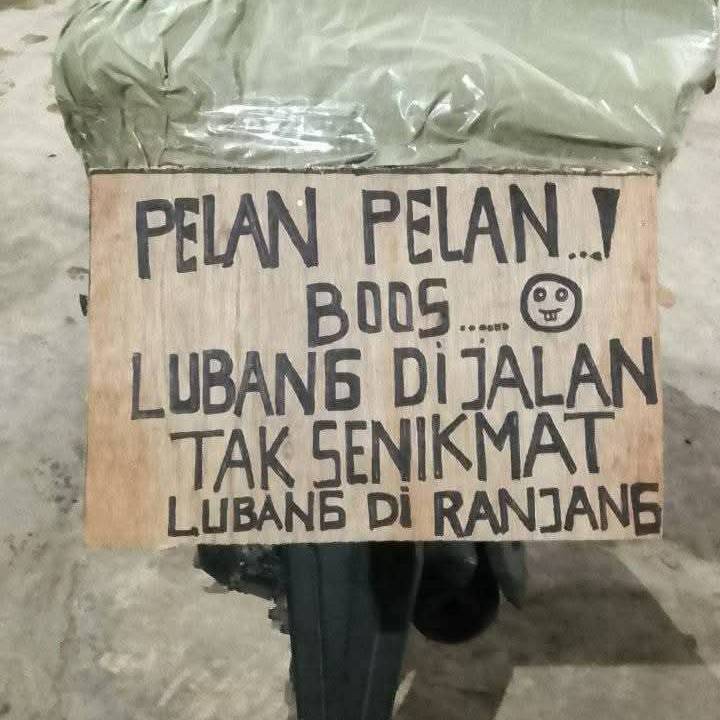 PELAN PELAN...!
BOOS......
LUBANG DI JALAN
TAK SENIKMAT
LUBANG DI RANJANG